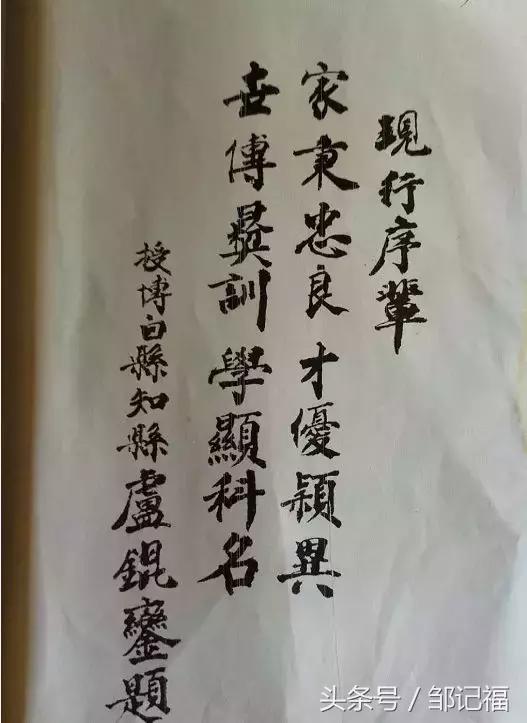 現行序輩
家秉忠良才優穎異
世傳彞訓學顯科名
授博白縣知縣盧錕鑾題
头条号/邹记福